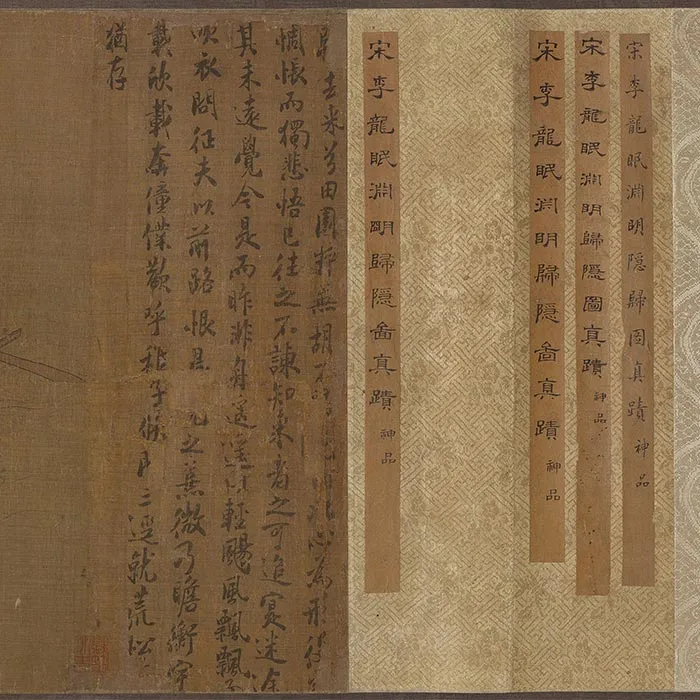 宋李龍眠淵明隱歸圖真蹟神品
宋李龍眠淵明歸隱圖真蹟神品
宋李龍眠淵明歸隱啚真蹟神品
宋李龍眠淵明歸隱啚真蹟神品
去來兮田園將蕪胡不心為形役
惆悵而獨悲悟已往之不諫知來者之可追寔迷途
其未遠覺今是而昨非舟遙遙以輕颺風飄飄
吹衣問征夫以前路恨晨光之熹微乃瞻衡宇
載欣載奔僮僕歡呼稚子候門三逕就荒松
猶存